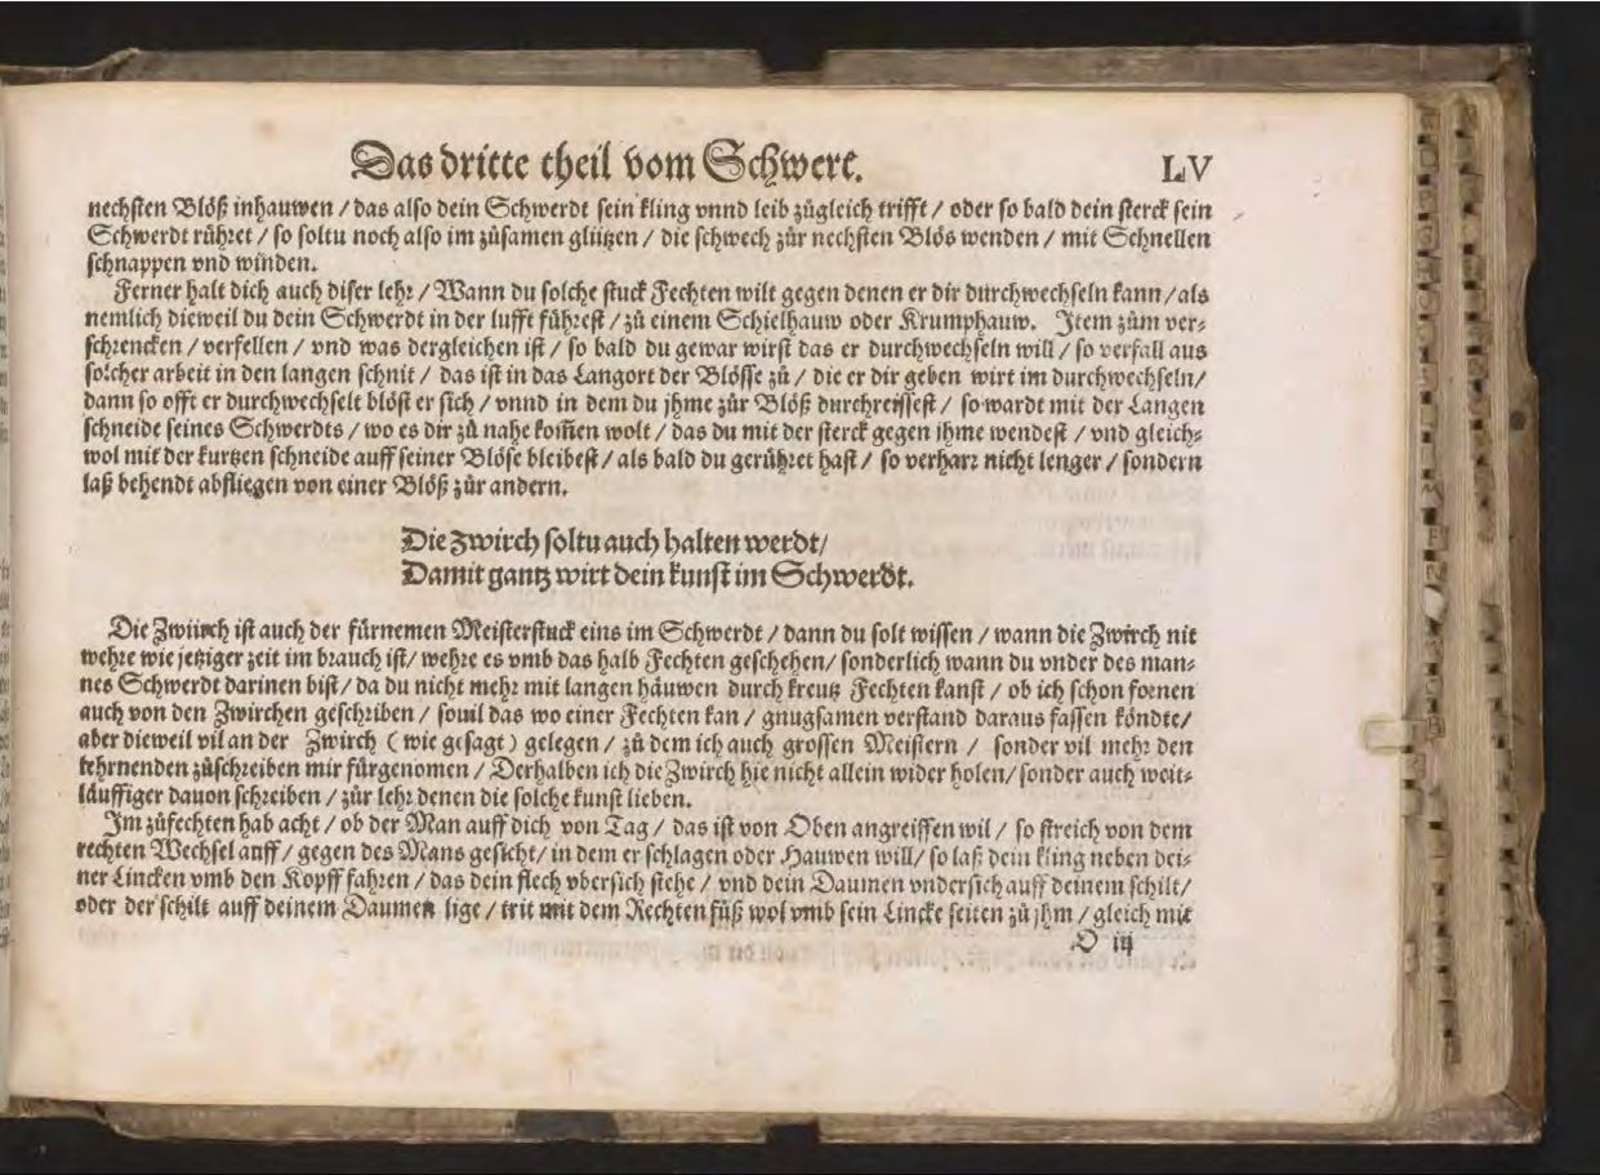 Das dritte theil vom Schwert. LV
nechsten Blöß inhauwen / das also dein Schwerdt sein kling vnnd leib zůgleich trifft / oder so bald dein sterck sein
Schwerdt rühret / so soltu noch also im zůsamen glützen / die schwech zůr nechsten Blös wenden / mit Schnellen
schnappen vnd winden.
Ferner halt dich auch diser lehr / Wann du solche stuck Fechten wilt gegen denen er dir durchwechseln kann / als
nemlich dieweil du dein Schwerdt in der lufft führest / zů einem Schielhauw oder Krumphauw. Item zům ver⸗
schrencken / verfellen / vnd was dergleichen ist / so bald du gewar wirst das er durchwechseln will / so verfall aus
solcher arbeit in den langen schnit / das ist in das Langort der Blösse zů / die er dir geben wirt im durchwechseln /
dann so offt er durchwechselt blöst er sich / vnnd in dem du jhme zůr Blöß durchreissest / so wardt mit der Langen
schneide seines Schwerdts / wo es dir zů nahe kom̃en wolt / das du mit der sterck gegen jhme wendest / vnd gleich⸗
wol mit der kurtzen schneide auff seiner Blöse bleibest / als bald du gerühret hast / so verharr nicht lenger / sondern
laß behendt abfliegen von einer Blöß zůr andern.
Die Zwirch soltu auch halten werdt /
Damit gantz wirt dein kunst im Schwerdt.
Die Zwürch ist auch der fürnemen Meisterstuck eins im Schwerdt / dann du solt wissen / wann die Zwirch nit
wehre wie jetziger zeit im brauch ist / wehre es vmb das halb Fechten geschehen / sonderlich wann du vnder des man⸗
nes Schwerdt darinen bist / da du nicht mehr mit langen häuwen durch kreutz Fechten kanst / ob ich schon fornen
auch von den Zwirchen geschriben / souil das wo einer Fechten kan / gnugsamen verstand daraus fassen köndte /
aber dieweil vil an der Zwirch ( wie gesagt ) gelegen / zů dem ich auch grossen Meistern / sonder vil mehr den
lehrnenden zůschreiben mir fürgenomen / Derhalben ich die Zwirch hie nicht allein wider holen / sonder auch weit⸗
läuffiger dauon schreiben / zůr lehr denen die solche kunst lieben.
Im zůfechten hab acht / ob der Man auff dich von Tag / das ist von Oben angreiffen wil / so streich von dem
rechten Wechsel auff / gegen des Mans gesicht / in dem er schlagen oder Hauwen will / so laß dein kling neben dei⸗
ner Lincken vmb den Kopff fahren / das dein flech vbersich stehe / vnd dein Daumen vndersich auff deinem schilt /
oder der schilt auff deinem Daumen lige / trit mit dem Rechten fůß wol vmb sein Lincke seiten zů jhm / gleich mit
O iij